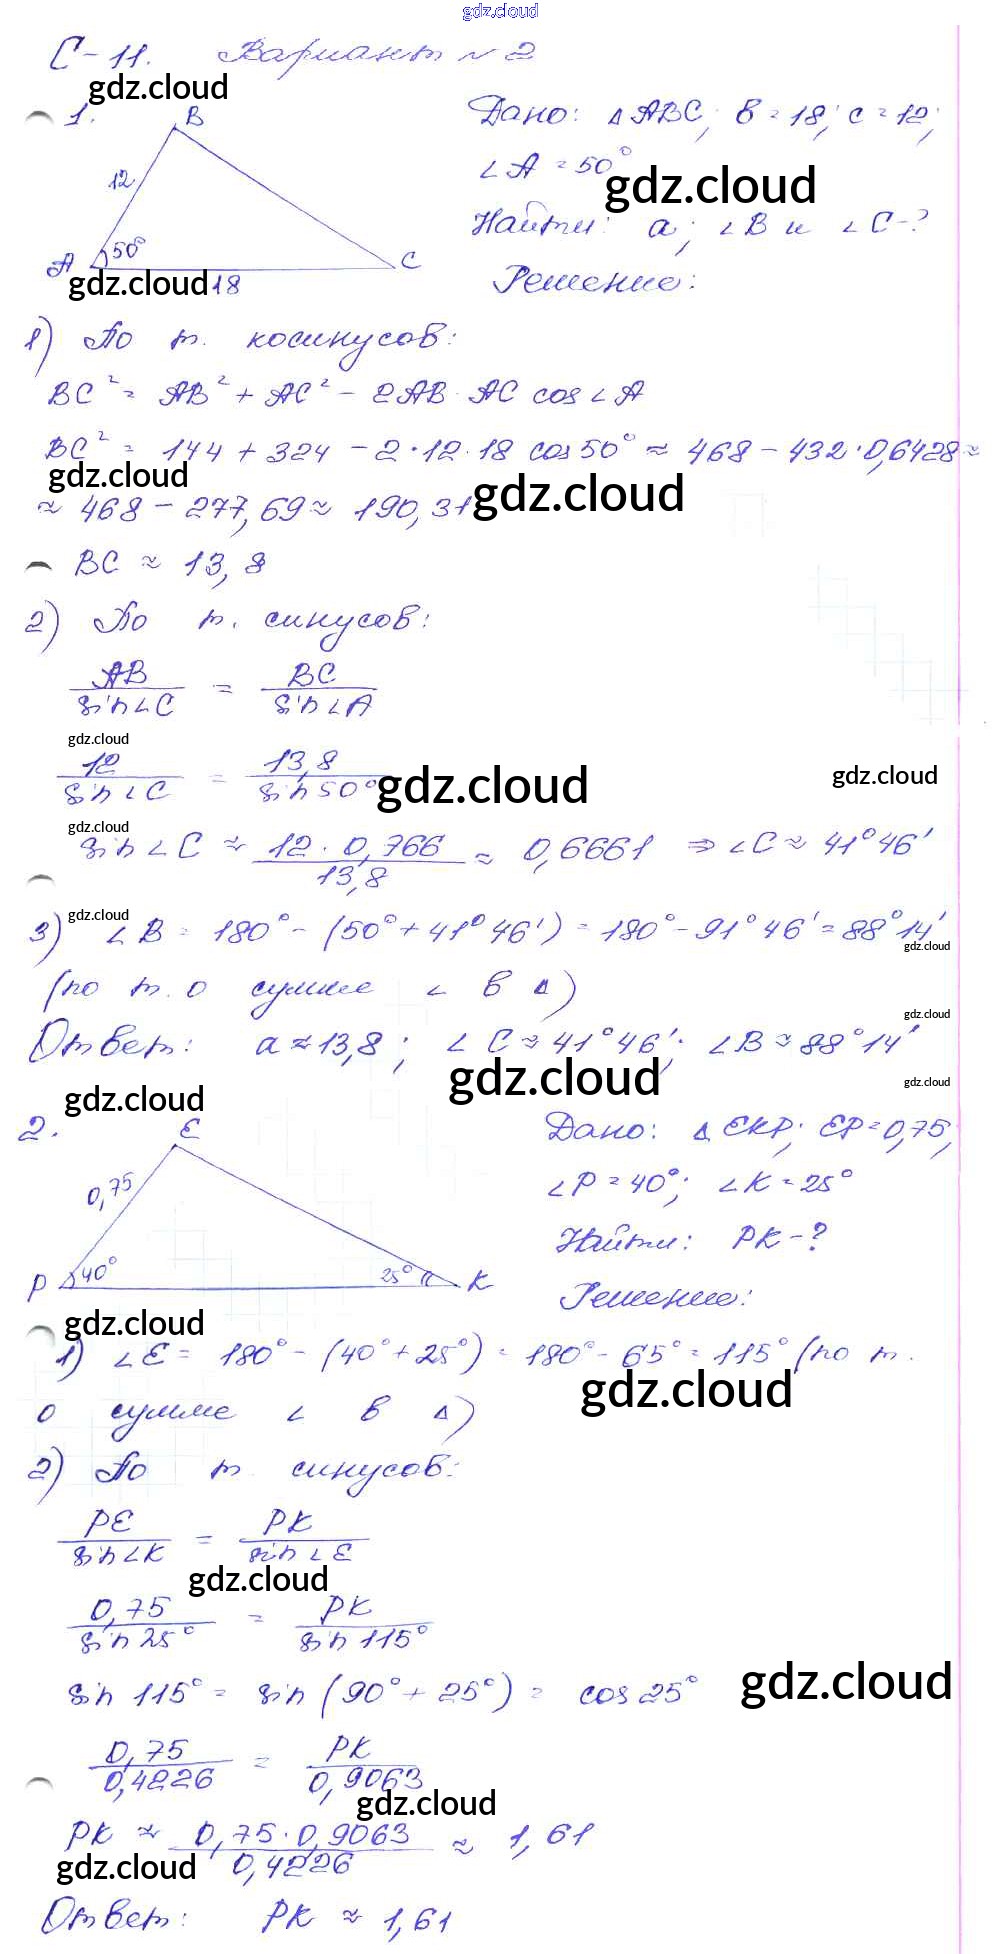 gdz.cloud
С-11. Вариант №2
gdz.cloud
1. B
12
A 50° C
gdz.cloud 18
Дано: △ABC; b=18; c=12;
∠A=50°
gdz.cloud
Найти: a; ∠B и ∠C-?
Решение:
1) По т. косинусов:
BC² = AB² + AC² - 2AB·AC cos∠A
BC² = 144 + 324 - 2·12·18 cos50° ≈ 468 - 432·0,6428 ≈
gdz.cloud
≈ 468 - 277,69 ≈ 190,31
gdz.cloud
BC ≈ 13,8
2) По т. синусов:
AB/sin∠C = BC/sin∠A
gdz.cloud
12/sin∠C = 13,8/sin50°
gdz.cloud
gdz.cloud
gdz.cloud
sin∠C ≈ 12·0,766/13,8 ≈ 0,6661 ⇒ ∠C ≈ 41°46'
gdz.cloud
3) ∠B = 180° - (50° + 41°46') = 180° - 91°46' = 88°14'
gdz.cloud
(по т. о сумме ∠ в △)
gdz.cloud
Ответ: a ≈ 13,8; ∠C ≈ 41°46'; ∠B ≈ 88°14'
gdz.cloud
gdz.cloud
gdz.cloud
2. E
0,75
P 40° 25° K
Дано: △EKP; EP=0,75;
∠P=40°; ∠K=25°
Найти: PK-?
Решение:
gdz.cloud
1) ∠E = 180° - (40° + 25°) = 180° - 65° = 115° (по т.
gdz.cloud
о сумме ∠ в △)
2) По т. синусов:
PE/sin∠K = PK/sin∠E
gdz.cloud
0,75/sin25° = PK/sin115°
sin115° = sin(90° + 25°) = cos25°
gdz.cloud
0,75/0,4226 = PK/0,9063
gdz.cloud
PK ≈ 0,75·0,9063/0,4226 ≈ 1,61
gdz.cloud
Ответ: PK ≈ 1,61